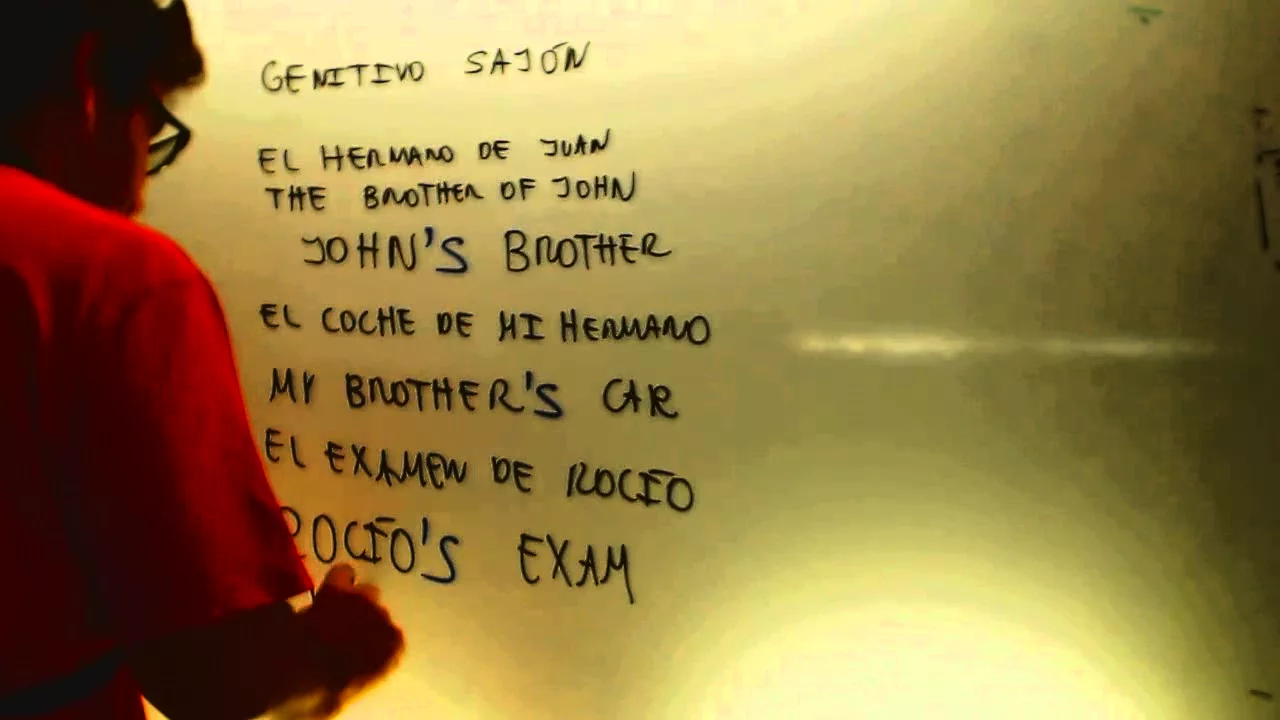 GENITIVO SAJÓN
EL HERMANO DE JUAN
THE BROTHER OF JOHN
JOHN'S BROTHER
EL COCHE DE MI HERMANO
MY BROTHER'S CAR
EL EXAMEN DE ROCÍO
ROCÍO'S EXAM